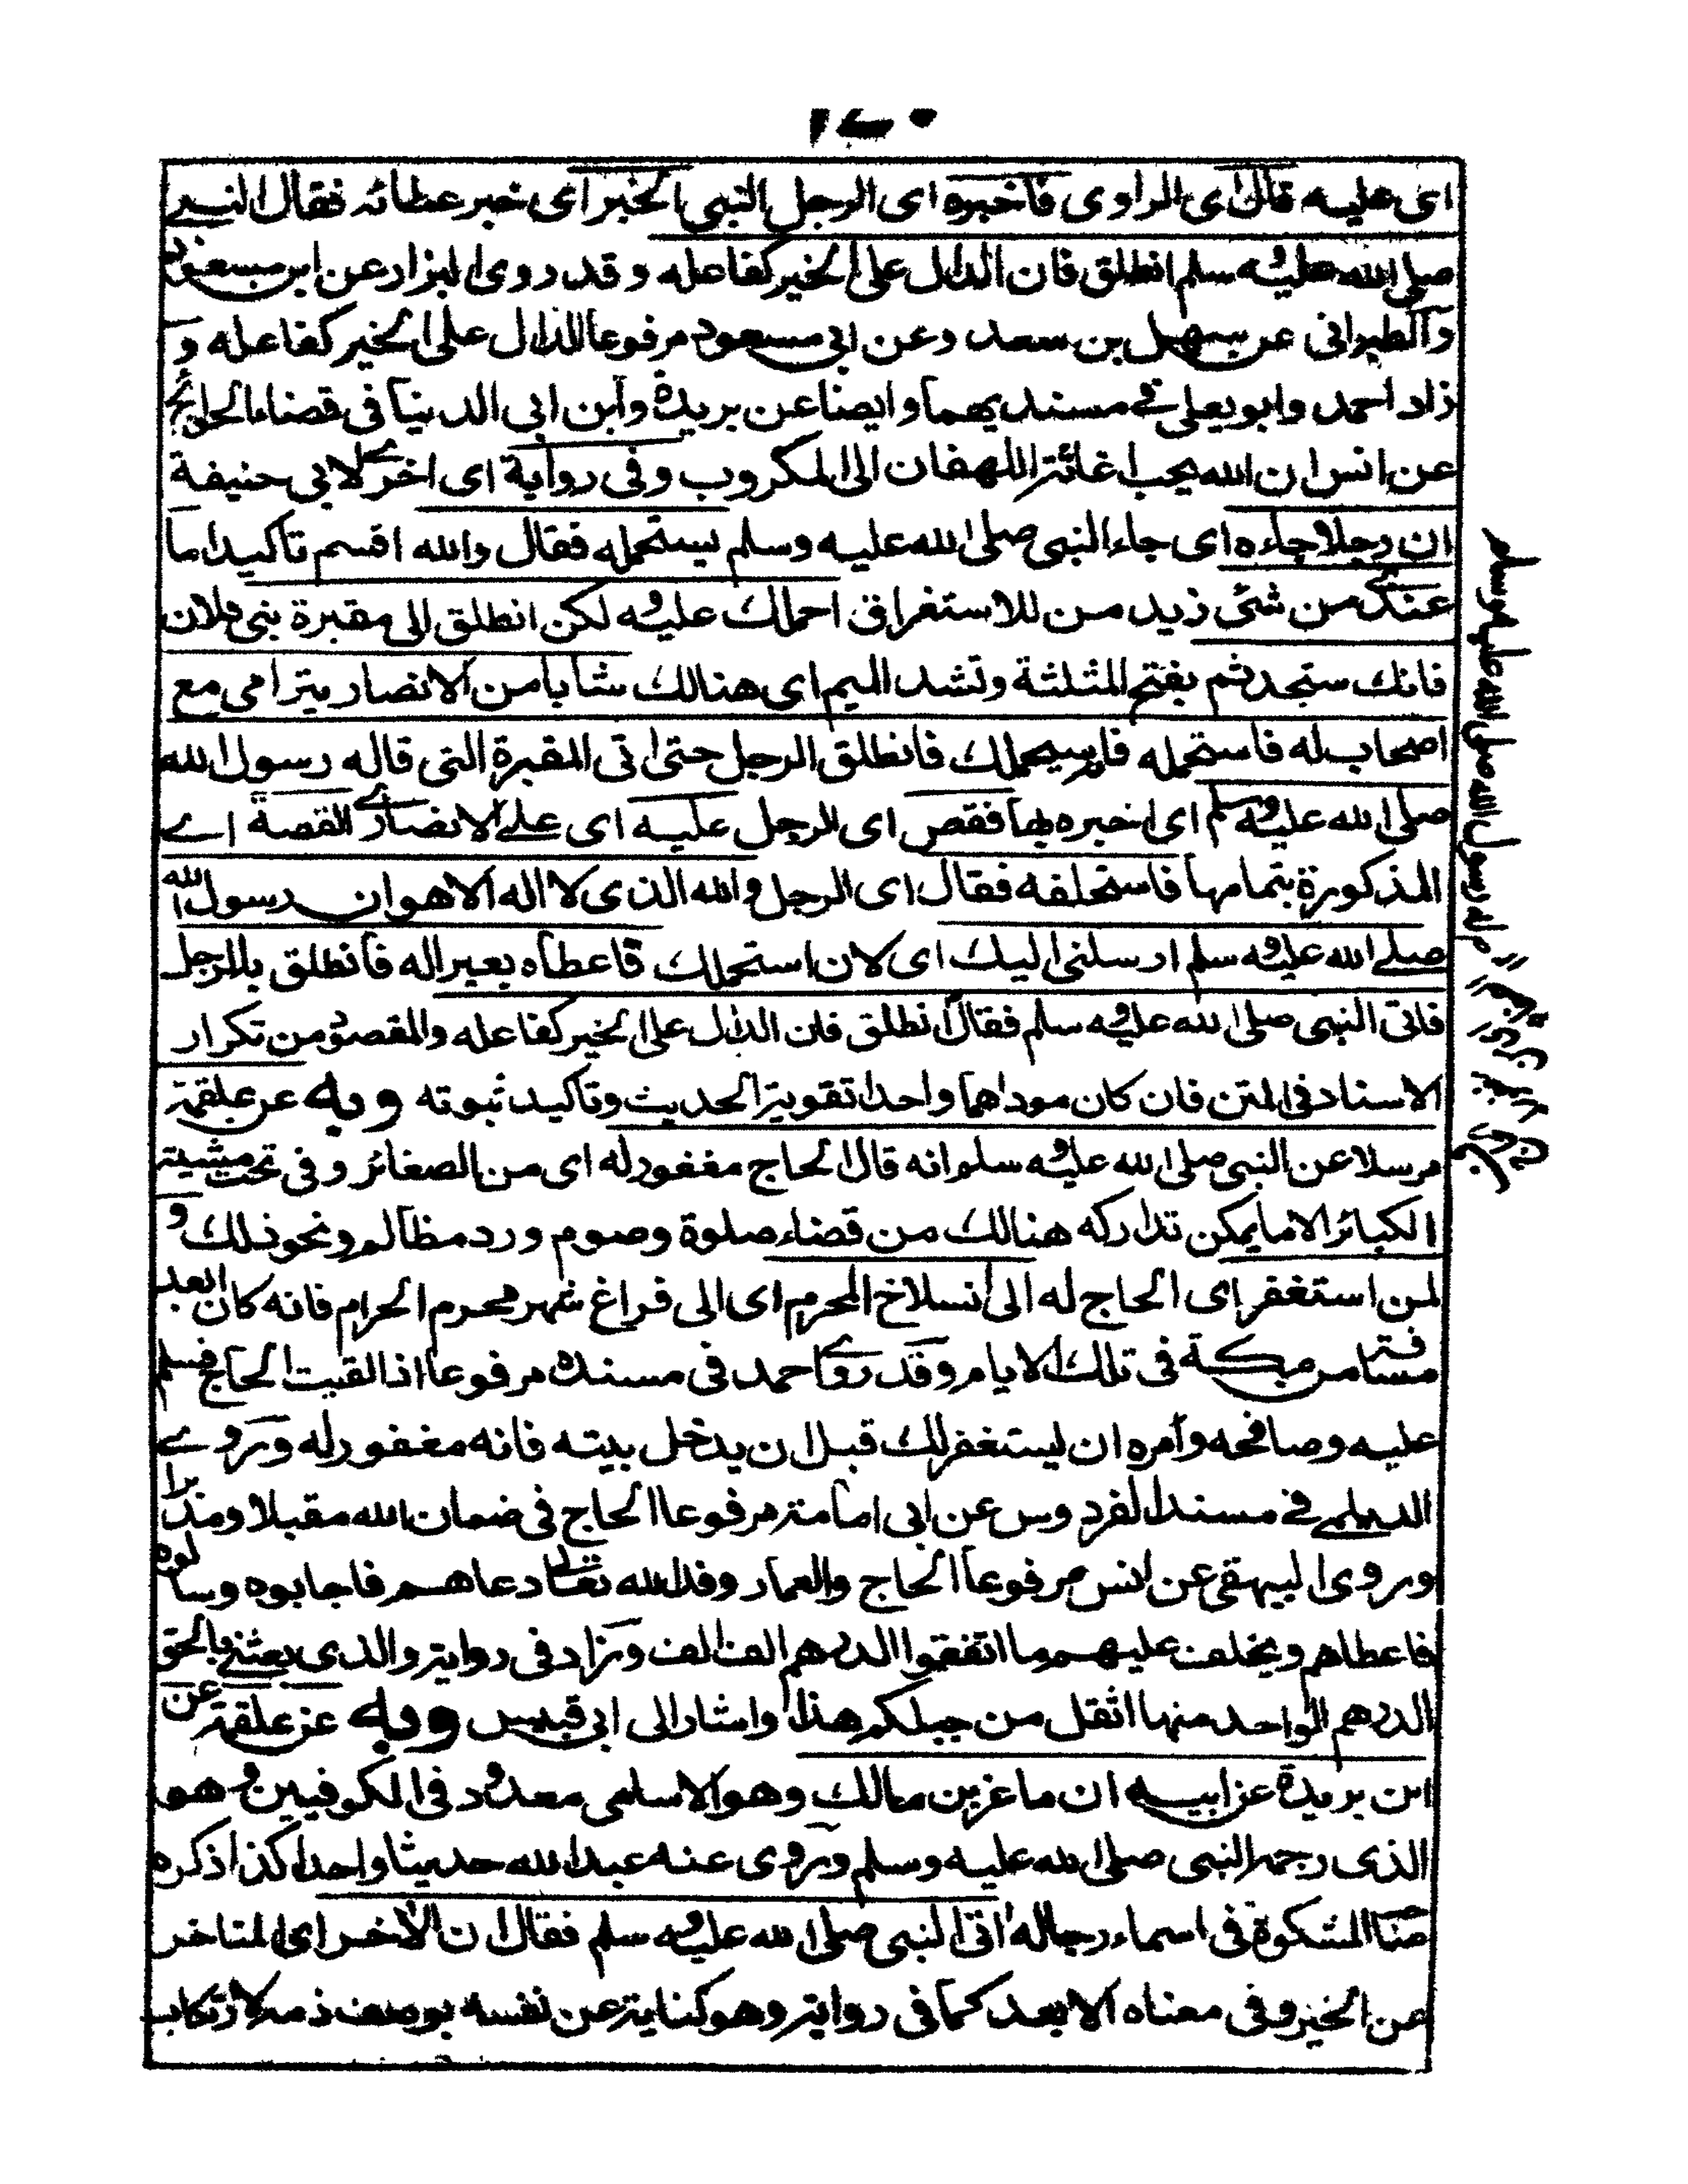 ١٤٠
اى عليه قال اى الراوى فاخبره اى الرجل النبى الخبر اى خبر عطائه فقال النبے
صلى الله عليه وسلم انطلق فان الدال على الخير كفاعله وقد روى البزار عن ابن مسعود
والطبرانى عن سهل بن سعد وعن ابى مسعود مرفوعا الدال على الخير كفاعله و
زاد احمد وابو يعلى فے مسنديهما وايضا عن بريدة وابن ابى الدنيا فى قضاء الحوائج
عن انس ان الله يحب اغاثة اللهفان اى المكروب وفى رواية اى اخرے لابى حنيفة
ان رجلا جاءه اى جاء النبى صلى الله عليه وسلم يستحمله فقال والله اقسم تاكيدا ما
عندے من شئ زيد من للاستغراق احملك عليه ولكن انطلق الى مقبرة بنى فلان
فانك ستجد ثم بفتح المثلثة وتشد الميم اى هنالك شابا من الانصار يترامى مع
اصحاب له فاستحمله فانه سيحملك فانطلق الرجل حتى اتى المقبرة التى قاله رسول الله
صلى الله عليه وسلم اى اخبره بها فقص اى الرجل عليه اى علے الانصارے القصة اے
المذكورة بتمامها فاستحلفه فقال اى الرجل والله الذى لا اله الا هو ان رسول الله
صلے الله عليه وسلم ارسلنى اليك اى لان استحملك فاعطاه بعيرا له فانطلق بالرجل
فاتى النبى صلى الله عليه وسلم فقال انطلق فان الدال على الخير كفاعله والمقصود من تكرار
الاسناد فى المتن فان كان موداهما واحدا تقوية الحديث وتاكيد ثبوته وبه عن علقمة
مرسلا عن النبى صلى الله عليه وسلم انه قال الحاج مغفور له اى من الصغائر وفى تحت مشيته
الكبائر الا ما يمكن تداركه هنالك من قضاء صلوة وصوم ورد مظالم ونحو ذلك و
لمن استغفر اى الحاج له الى انسلاخ المحرم اى الى فراغ شهر محرم الحرام فانه كان ابعد
مسافة من مكة فى تلك الايام وقد روے احمد فى مسنده مرفوعا اذا لقيت الحاج فسلم
عليه وصافحه وامره ان يستغفر لك قبل ان يدخل بيته فانه مغفور له وروے
الديلمے فے مسند الفردوس عن ابى امامة مرفوعا الحاج فى ضمان الله مقبلا ومدبرا
وروى البيهقى عن انس مرفوعا الحاج والعمار وفد الله تعالى دعاهم فاجابوه وسالوه
فاعطاهم ويخلف عليهم ما انفقوا الدرهم الف الف وزاد فى رواية والذى بعثنے بالحق
الدرهم الواحد منها اثقل من جبلكم هذا واشار الى ابى قبيس وبه عن علقمة عن
ابن بريدة عن ابيه ان ماعز بن مالك وهو الاسلمى معدود فى الكوفيين وهو
الذى رجمه النبى صلى الله عليه وسلم وروى عنه عبد الله حديثا واحدا كذا ذكره
صنا المشكوة فى اسماء رجاله اتى النبى صلى الله عليه وسلم فقال ان الاخر اى المتاخر
عن الخير وفى معناه الابعد كما فى رواية وهو كناية عن نفسه بوصف ذمه لارتكاب
له رسول الله صلى الله عليه وسلم